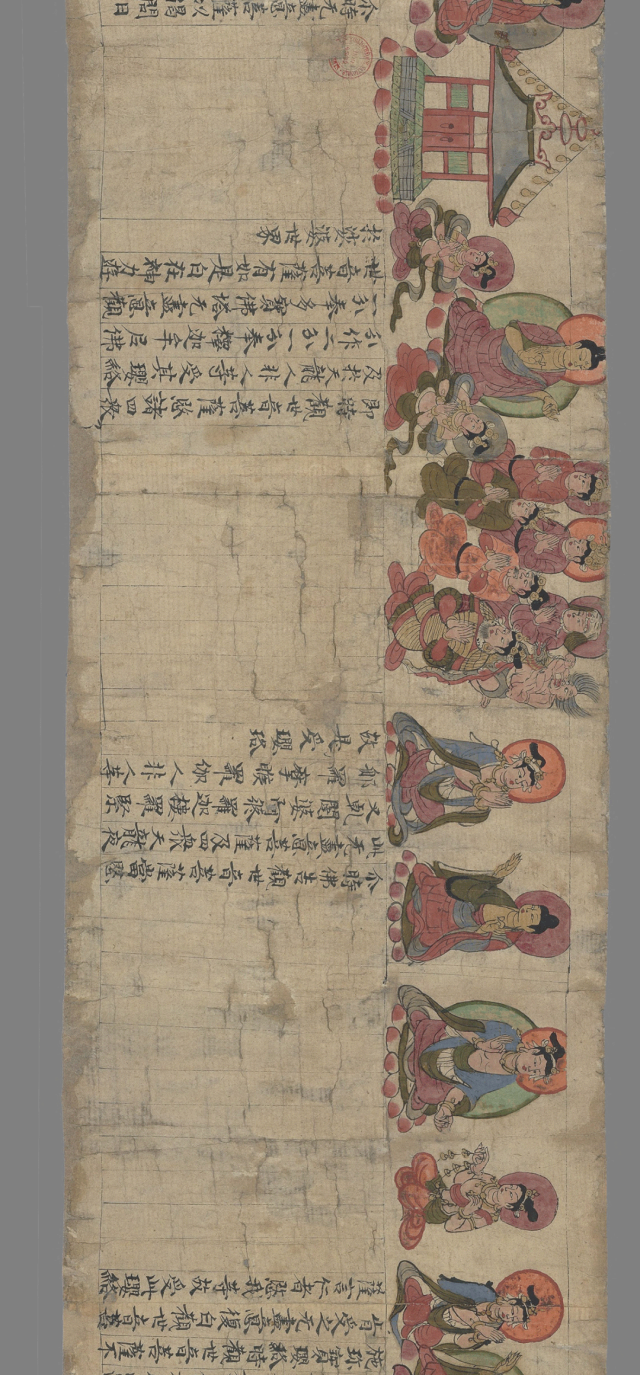 施珎寶瓔珞時觀世音菩薩不
肯受之无盡意復白觀世音菩
薩言仁者愍我等故受此瓔珞
尒時佛告觀世音菩薩當愍
此无盡意菩薩及四衆天龍夜
叉乹闥婆阿脩羅迦樓羅緊
那羅摩睺羅伽人非人等
故是受瓔珞
即時觀世音菩薩愍諸四衆
及於天龍人非人等受其瓔珞
分作二分一分奉釋迦牟尼佛
一分奉多寶佛塔无盡意觀
世音菩薩有如是自在神力遊
於娑婆世界
尒時无盡意菩薩以偈問曰